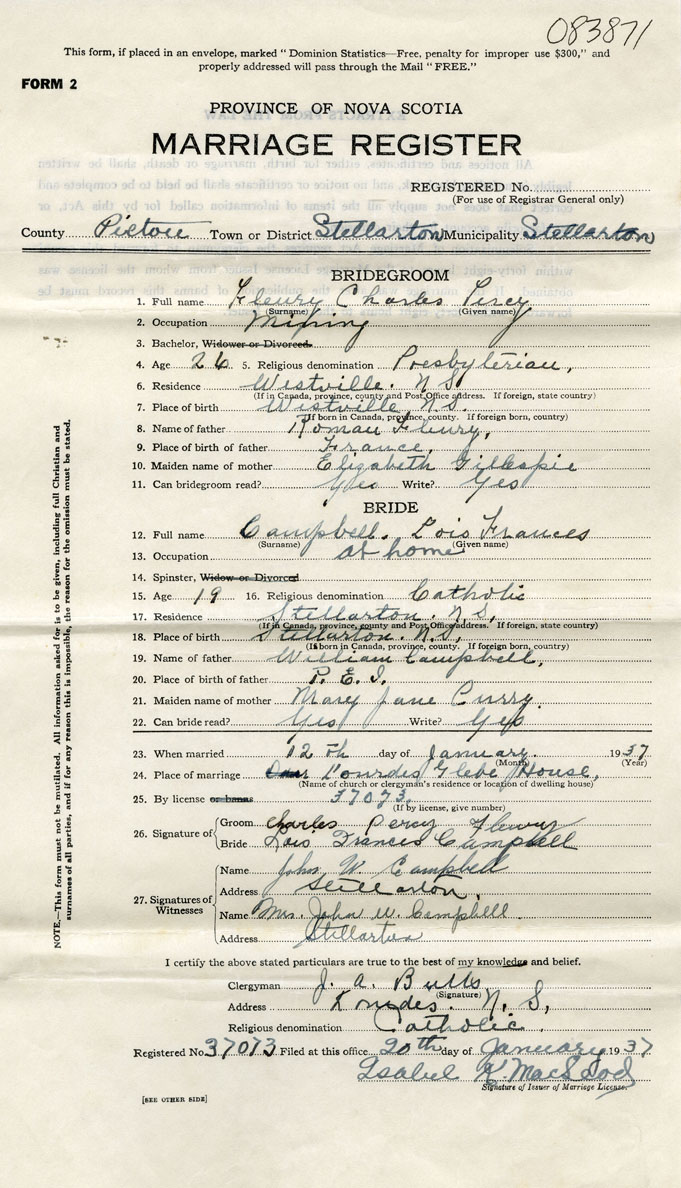 083871
This form, if placed in an envelope, marked "Dominion Statistics—Free, penalty for improper use $300," and
properly addressed will pass through the Mail "FREE."
FORM 2
PROVINCE OF NOVA SCOTIA
MARRIAGE REGISTER
REGISTERED No.
(For use of Registrar General only)
County Pictou Town or District Stellarton Municipality Stellarton
BRIDEGROOM
1. Full name Fleury Charles Percy
(Surname) (Given name)
2. Occupation Mining
3. Bachelor, Widower or Divorced.
4. Age 26 5. Religious denomination Presbyterian,
6. Residence Westville. N S.
(If in Canada, province, county and Post Office address. If foreign, state country)
7. Place of birth Westville, N.S.
(If born in Canada, province, county. If foreign born, country)
8. Name of father Roman Fleury,
9. Place of birth of father France,
10. Maiden name of mother Elizabeth Gillespie
11. Can bridegroom read? Yes Write? Yes
BRIDE
12. Full name Campbell. Lois Frances
(Surname) (Given name)
13. Occupation at home
14. Spinster, Widow or Divorced
15. Age 19 16. Religious denomination Catholic
17. Residence Stellarton. N.S,
(If in Canada, province, county and Post Office address. If foreign, state country)
18. Place of birth Stellarton. N.S,
(If born in Canada, province, county. If foreign born, country)
19. Name of father William Campbell,
20. Place of birth of father P. E. I.
21. Maiden name of mother Mary Jane Curry
22. Can bride read? Yes Write? Yes
23. When married 12 Th day of January. 1937
(Month) (Year)
24. Place of marriage Lourdes Glebe House,
(Name of church or clergyman's residence or location of dwelling house)
25. By license or banns 37073.
(If by license, give number)
26. Signature of Groom Charles Percy Fleury
Bride Lois Frances Campbell
27. Signatures of Witnesses
Name John W. Campbell
Address Stellarton.
Name Mrs. John W. Campbell
Address Stellarton
I certify the above stated particulars are true to the best of my knowledge and belief.
Clergyman J. A. Butts
(Signature)
Address Lourdes. N. S,
Religious denomination Catholic.
Registered No. 37073 Filed at this office 20th day of January 1937
Isabel K. MacLeod
Signature of Issuer of Marriage License.
[SEE OTHER SIDE]
NOTE.—This form must not be mutilated. All information asked for is to be given, including full Christian and
surnames of all parties, and if for any reason this is impossible, the reason for the omission must be stated.